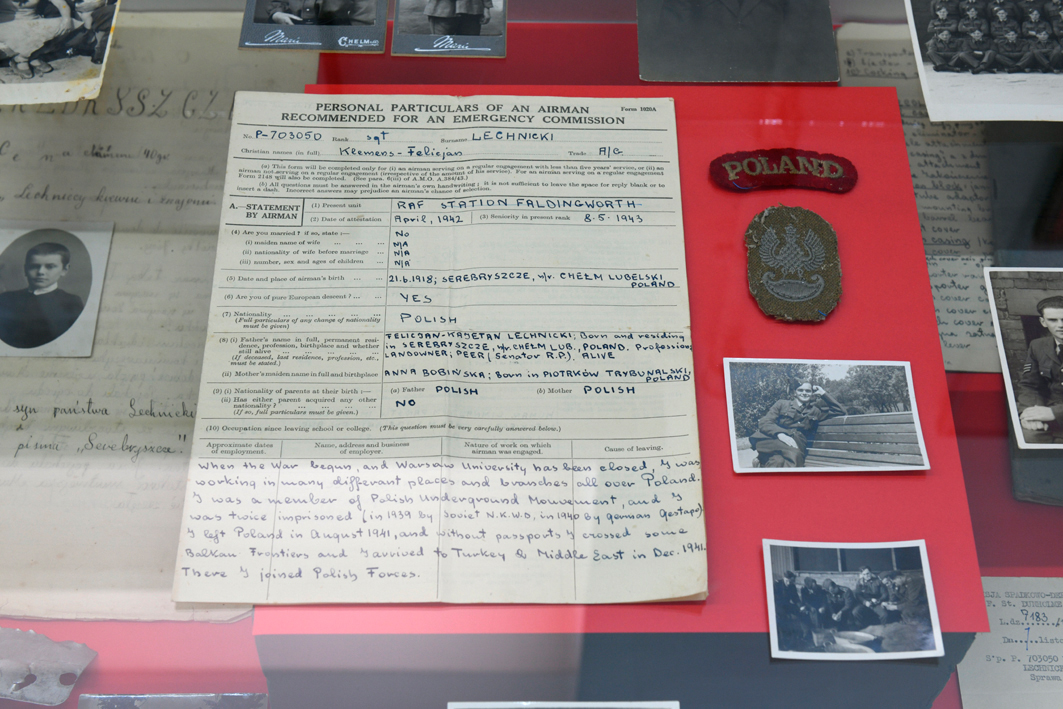 CHELM
PERSONAL PARTICULARS OF AN AIRMAN Form 1020A
RECOMMENDED FOR AN EMERGENCY COMMISSION
No. P-703050 Rank sgt Surname LECHNICKI
Christian names (in full) Klemens-Felicjan Trade A/G
(a) This form will be completed only for (i) an airman serving on a regular engagement with less than five years' service, or (ii) an
airman not serving on a regular engagement (irrespective of the amount of his service). For an airman serving on a regular engagement
Form 2148 will also be completed. (See para. 6(iii) of A.M.O. A.384/42.)
(b) All questions must be answered in the airman's own handwriting; it is not sufficient to leave the space for reply blank or to
insert a dash. Incorrect answers may prejudice an airman's chance of selection.
A.—STATEMENT BY AIRMAN
(1) Present unit RAF STATION FALDINGWORTH
(2) Date of attestation April, 1942 (3) Seniority in present rank 8-5-1943
(4) Are you married? if so, state:— No
(i) maiden name of wife ... N/A
(ii) nationality of wife before marriage ... N/A
(iii) number, sex and ages of children ... N/A
(5) Date and place of airman's birth ... 21.6.1918; SEREBRYSZCZE, n/r. CHEŁM LUBELSKI,
POLAND
(6) Are you of pure European descent? ... YES
(7) Nationality ... POLISH
(Full particulars of any change of nationality
must be given)
(8) (i) Father's name in full, permanent resi- FELICJAN-KAJETAN LECHNICKI; Born and residing
dence, profession, birthplace and whether in SEREBRYSZCZE, n/r CHEŁM LUB., POLAND. Profession:
still alive ... LANDOWNER; PEER (Senator R.P.). ALIVE
(If deceased, last residence, profession, etc.,
must be stated.)
(ii) Mother's maiden name in full and birthplace ANNA BOBIŃSKA; Born in PIOTRKÓW TRYBUNALSKI,
POLAND
(9) (i) Nationality of parents at their birth:— (a) Father POLISH (b) Mother POLISH
(ii) Has either parent acquired any other NO
nationality? ...
(If so, full particulars must be given.)
(10) Occupation since leaving school or college. (This question must be very carefully answered below.)
Approximate dates of employment. Name, address and business of employer. Nature of work on which airman was engaged. Cause of leaving.
When the War begun, and Warsaw University has been closed, I was
working in many different places and branches all over Poland.
I was a member of Polish Underground Mouvement, and I
was twice imprisoned (in 1939 by Soviet N.K.W.D, in 1940 by german Gestapo).
I left Poland in August 1941, and without passports I crossed some
Balkan Frontiers and I arrived to Turkey & Middle East in Dec. 1941.
There I joined Polish Forces.
POLAND
syn państwa Lechnickich
pisma „Serebryszcze"
9183
P. 703050
LECHNICK
Sprawa